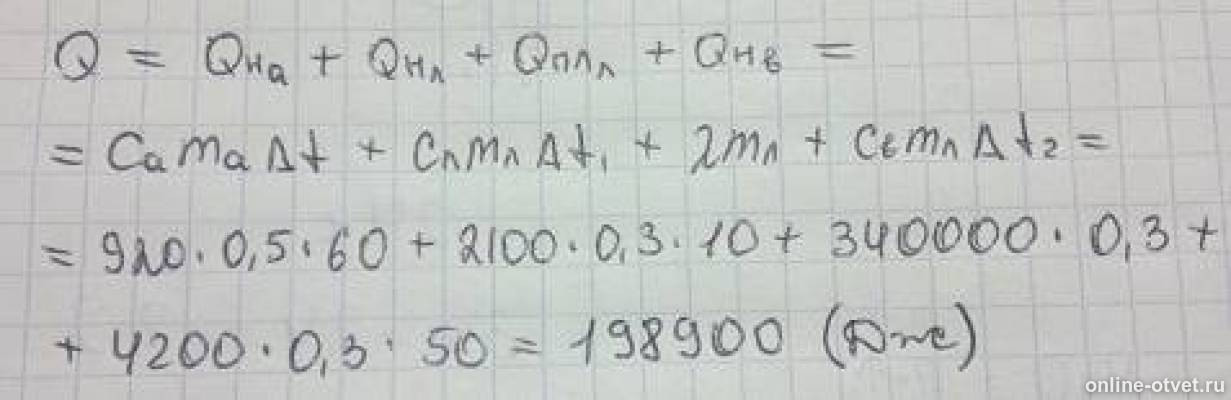 Q = Qнa + Qнл + Qплл + Qнв =
= Cama Δt + Cлmл Δt₁ + λmл + Cвmл Δt₂ =
= 920 · 0,5 · 60 + 2100 · 0,3 · 10 + 340000 · 0,3 +
+ 4200 · 0,3 · 50 = 198900 (Дже)
online-otvet.ru